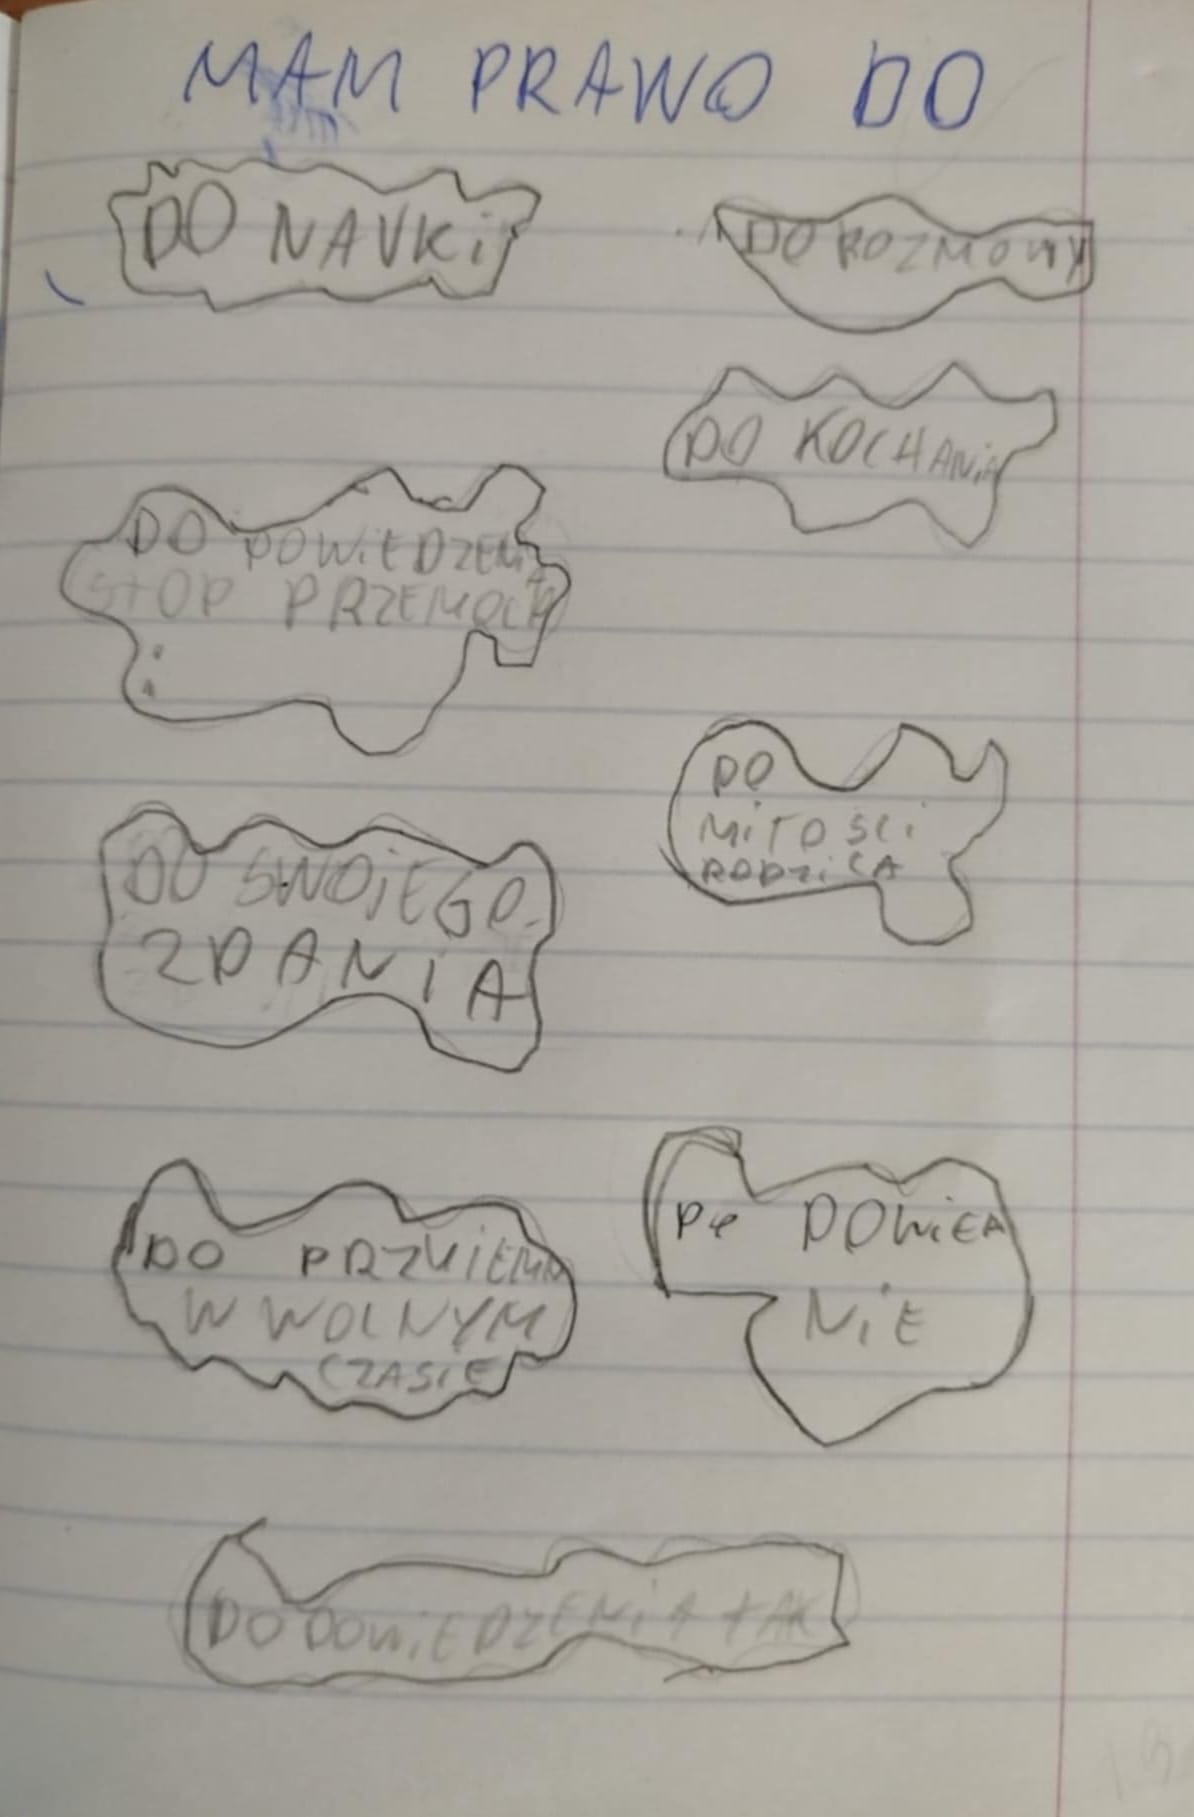 MAM PRAWO DO
DO NAUKi
DO ROZMOWY
DO KOCHANiA
DO POWiEDZENiA
STOP PRZEMOCY
DO
MiŁOŚCi
RODZiCA
DO SWOJEGO
ZDANiA
DO PRZYJEMN
W WOLNYM
CZASIE
POWiEA
NiE
DO POWiEDZENiA tAK